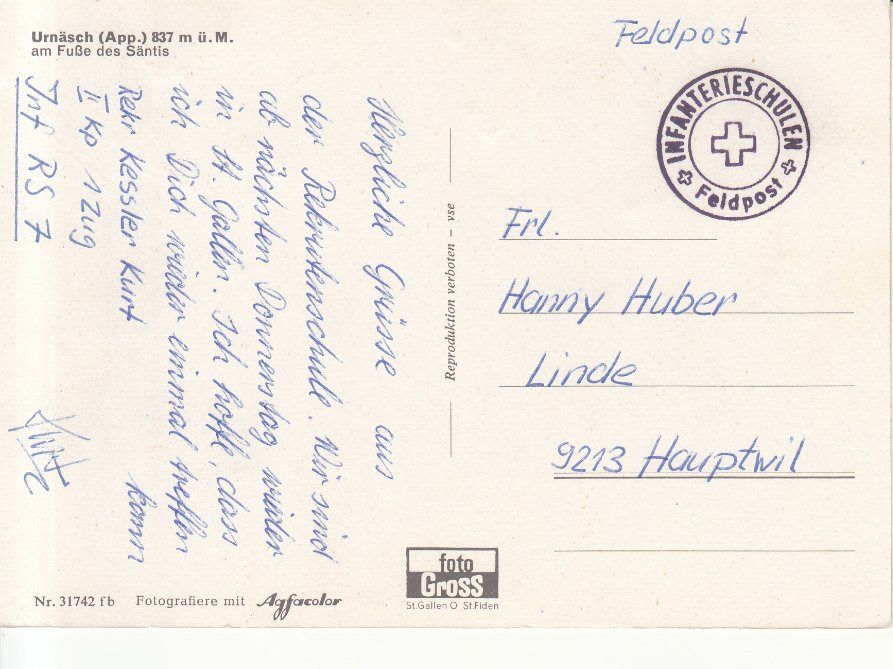 Urnäsch (App.) 837 m ü. M.
am Fuße des Säntis
Herzliche Grüsse aus
der Rekrutenschule. Wir sind
ab nächsten Donnerstag wieder
in St. Gallen. Ich hoffe, dass
ich Dich wieder einmal treffen
kann
Rekr Kessler Kurt
II Kp 1 Zug
Inf RS 7
Kurt
Reproduktion verboten – vse
Feldpost
INFANTERIESCHULEN
Feldpost
Frl.
Hanny Huber
Linde
9213 Hauptwil
Nr. 31742 fb Fotografiere mit Agfacolor
foto
Gross
St.Gallen O St.Fiden